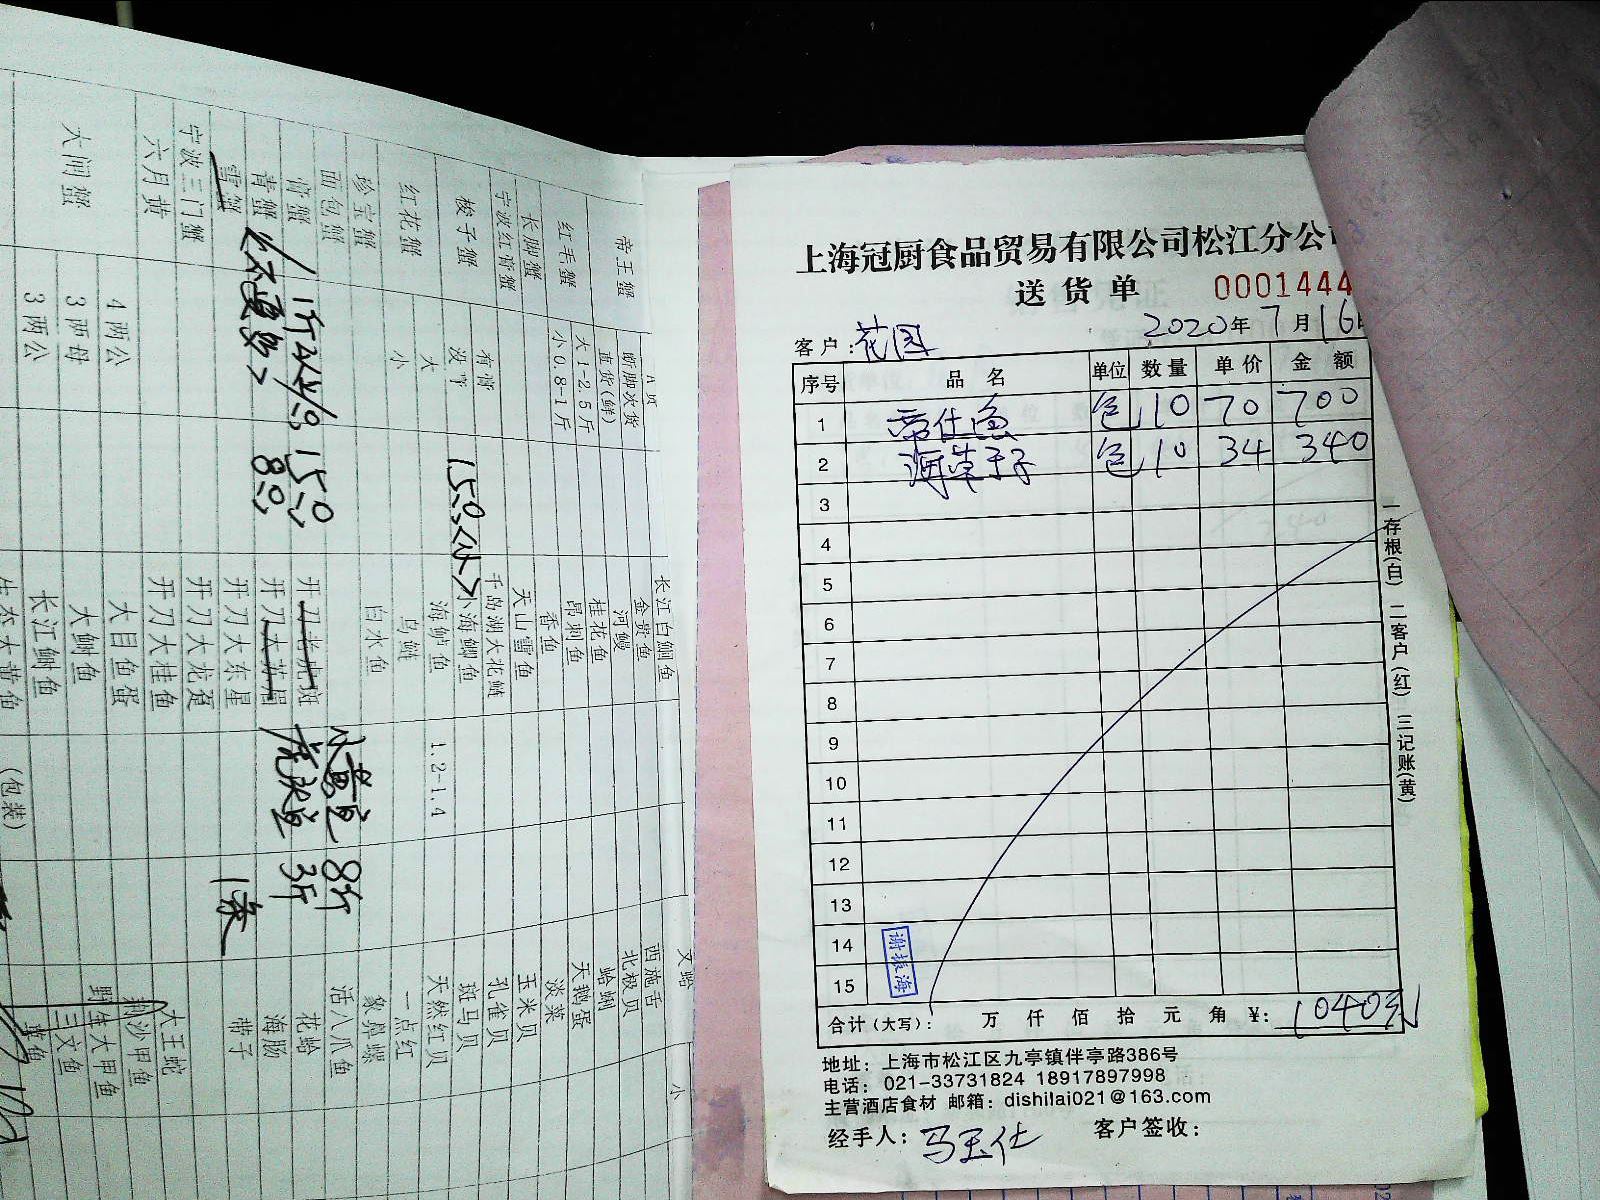 上海冠厨食品贸易有限公司松江分公司
送货单 0001444
2020年7月16日
客户:花园
序号 品名 单位 数量 单价 金额
1 帝仕鱼 包 10 70 700
2 海草干子 包 10 34 340
3
4
5
6
7
8
9
10
11
12
13
14
15
谢振海
合计(大写): 万 仟 佰 拾 元 角 ¥: 1040元
一存根(白) 二客户(红) 三记账(黄)
地址: 上海市松江区九亭镇伴亭路386号
电话: 021-33731824 18917897998
主营酒店食材 邮箱: dishilai021@163.com
经手人: 马玉仕 客户签收:
A页
帝王蟹 断脚次货
直货(鲜)
红毛蟹 大1-2.5斤
小0.8-1斤
长脚蟹
宁波红膏蟹
梭子蟹 有膏
没膏
红花蟹 大
小
珍宝蟹
面包蟹
膏蟹
青蟹
雪蟹
宁波三门蟹
六月黄
大闸蟹 4两公
3两母
3两公
长江白鮰鱼
金贵鱼
河鳗
桂花鱼
昂刺鱼
香鱼
天山雪鱼
千岛湖大花鲢
小海鲫鱼
海鲈鱼 1.2-1.4
乌鲢
白水鱼
开刀老虎斑
开刀大东星
开刀大龙趸
开刀大桂鱼
大目鱼蛋
大鲥鱼
长江鲥鱼
生态大黄鱼 (包装)
文蛤 小
西施舌
北极贝
蛤蜊
天鹅蛋
淡菜
玉米贝
孔雀贝
斑马贝
天然红贝
一点红
象鼻螺
活八爪鱼
花蛤
海肠
带子
大王蛇
野生大甲鱼
三文鱼
150
80
8斤
3斤
1条